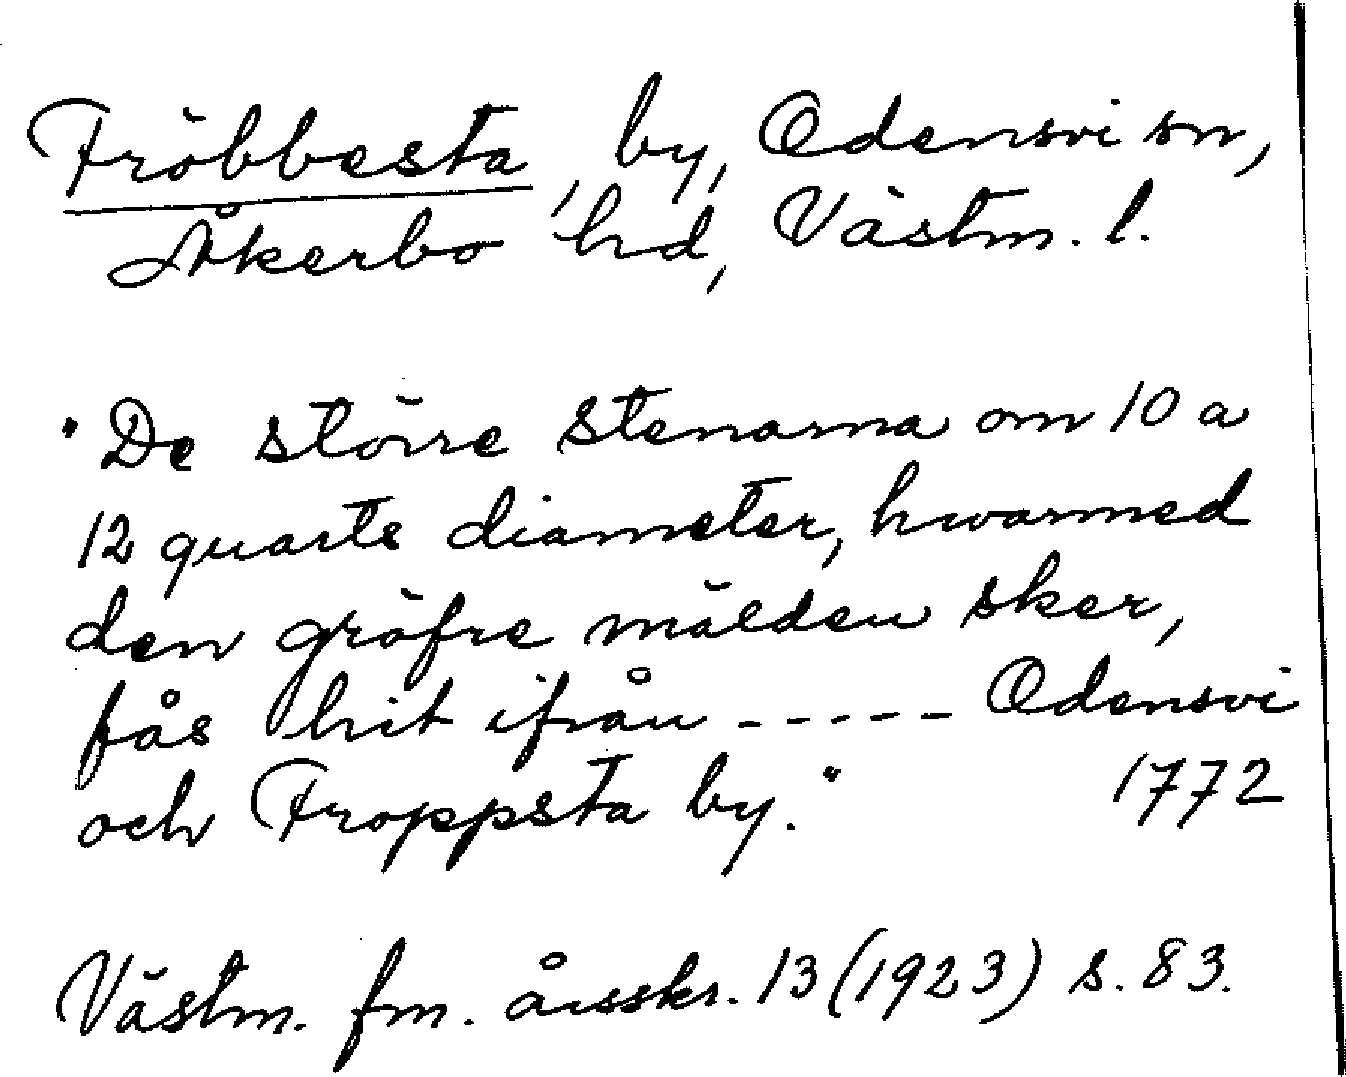 Fröbbesta, by, Odensvi sn,
Åkerbo hd, Västm. l.
"De större stenarna om 10 a
12 quarts diameter, hwarmed
den gröfre mälden sker,
fås hit ifrån ----- Odensvi
och Froppsta by." 1772
Västm. fm. årsskr. 13 (1923) s. 83.